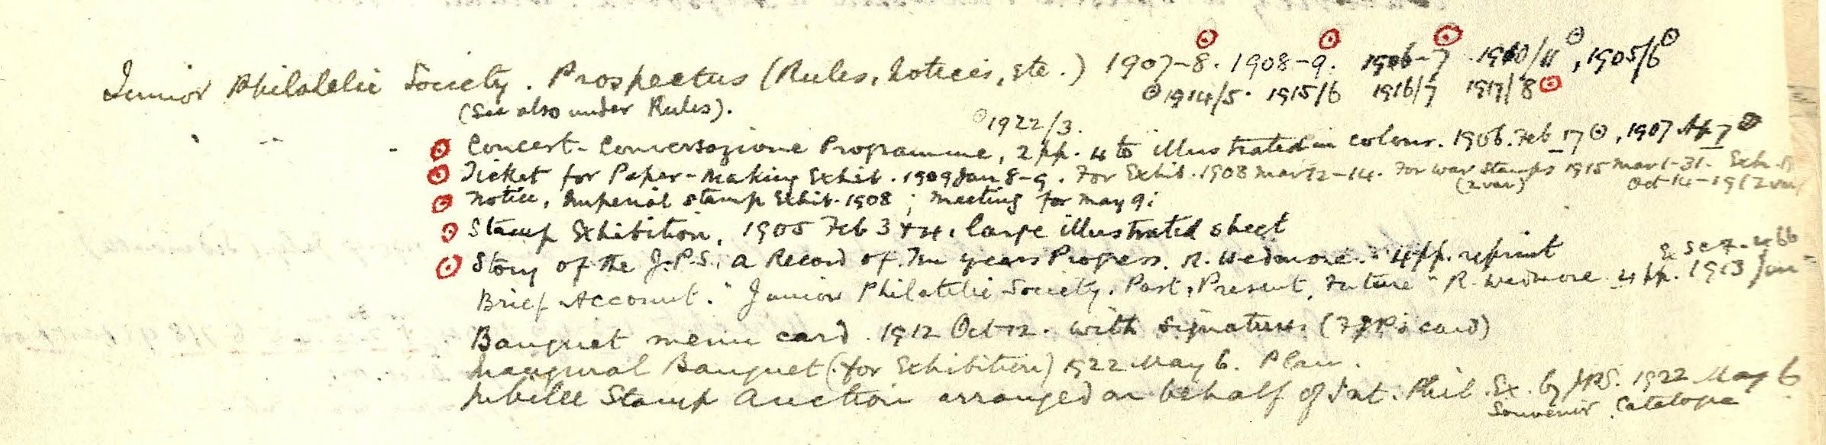 Junior Philatelic Society. Prospectus (Rules, Notices, etc.) 1907-8. 1908-9. 1906-7 1910/11, 1905/6
(See also under Rules). 1914/5. 1915/6 1916/7 1917/8
1922/3.
Concert-Conversazione Programme, 2pp. 4to illustrated in colour. 1906. Feb 17, 1907 Ap 7
Ticket for Paper-Making Exhib. 1909 Jan 8-9. For Exhib. 1908 Mar 12-14. For War Stamps 1915 Mar 1-31. Exh.
(2 var) Oct-14-19 (2 var)
Notice, Imperial Stamp Exhib. 1908; Meeting for May 9;
Stamp Exhibition, 1905 Feb 3 & 4. large illustrated sheet
Story of the J.P.S. a Record of Ten years Progress. R. Wedmore. 4pp. reprint
Brief Account. "Junior Philatelic Society. Past, Present, Future" R. Wedmore 4pp. 1913 Jan
Banquet menu card. 1912 Oct 12. with signatures (FJP's card)
Inaugural Banquet (for Exhibition) 1922 May 6. Plan.
Jubilee Stamp Auction arranged on behalf of Int. Phil. Ex. by JPS. 1922 May 6
Souvenir Catalogue